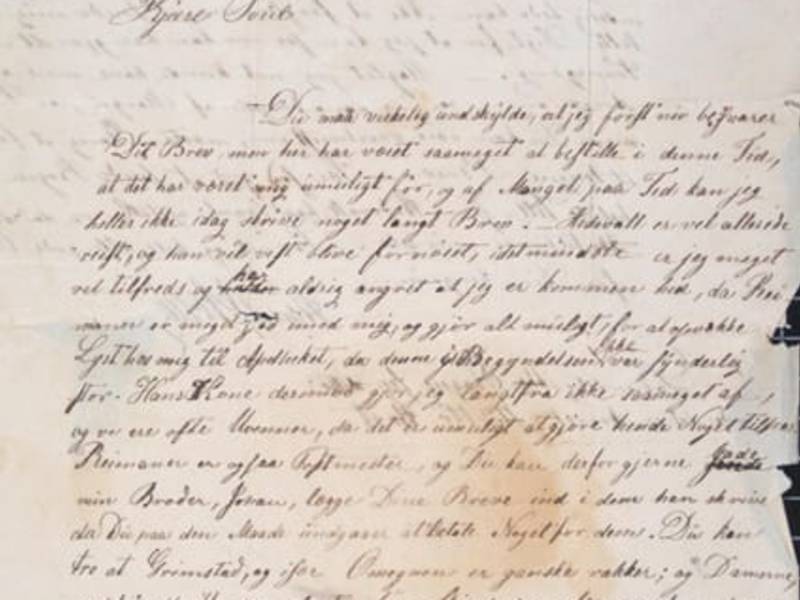 Kjære Poul
Du maa virkelig undskylde, at jeg først nu besvarer
Dit Brev, men her har været saameget at bestille i denne Tid,
at det har været mig umuligt før, og af Mangel paa Tid kan jeg
heller ikke idag skrive noget langt Brev. er vel allerede
reist, og han vil vist blive fornøiet, idetmindste er jeg meget
vel tilfreds og har aldrig angret at jeg er kommen hid, da Rei
maner er meget god imod mig, og gjør alt muligt, for at opvække
Lyst hos mig til Apotheket, da denne i Begyndelsen ikke var synderlig
stor. Hans Kone derimod gjør jeg langtfra ikke saameget af,
og vi ere ofte Uvenner, da det er umuligt at gjøre hende Noget tilpas.
Reimaner er ogsaa Postmester, og Du kan derfor gjerne lade
min Broder, Johan, lægge Dine Breve ind i dem han skriver
da Du paa den Maade undgaaer at betale Noget for dem. Du kan
tro at Grimstad, og især Omegnen er ganske vakker; og Damerne,